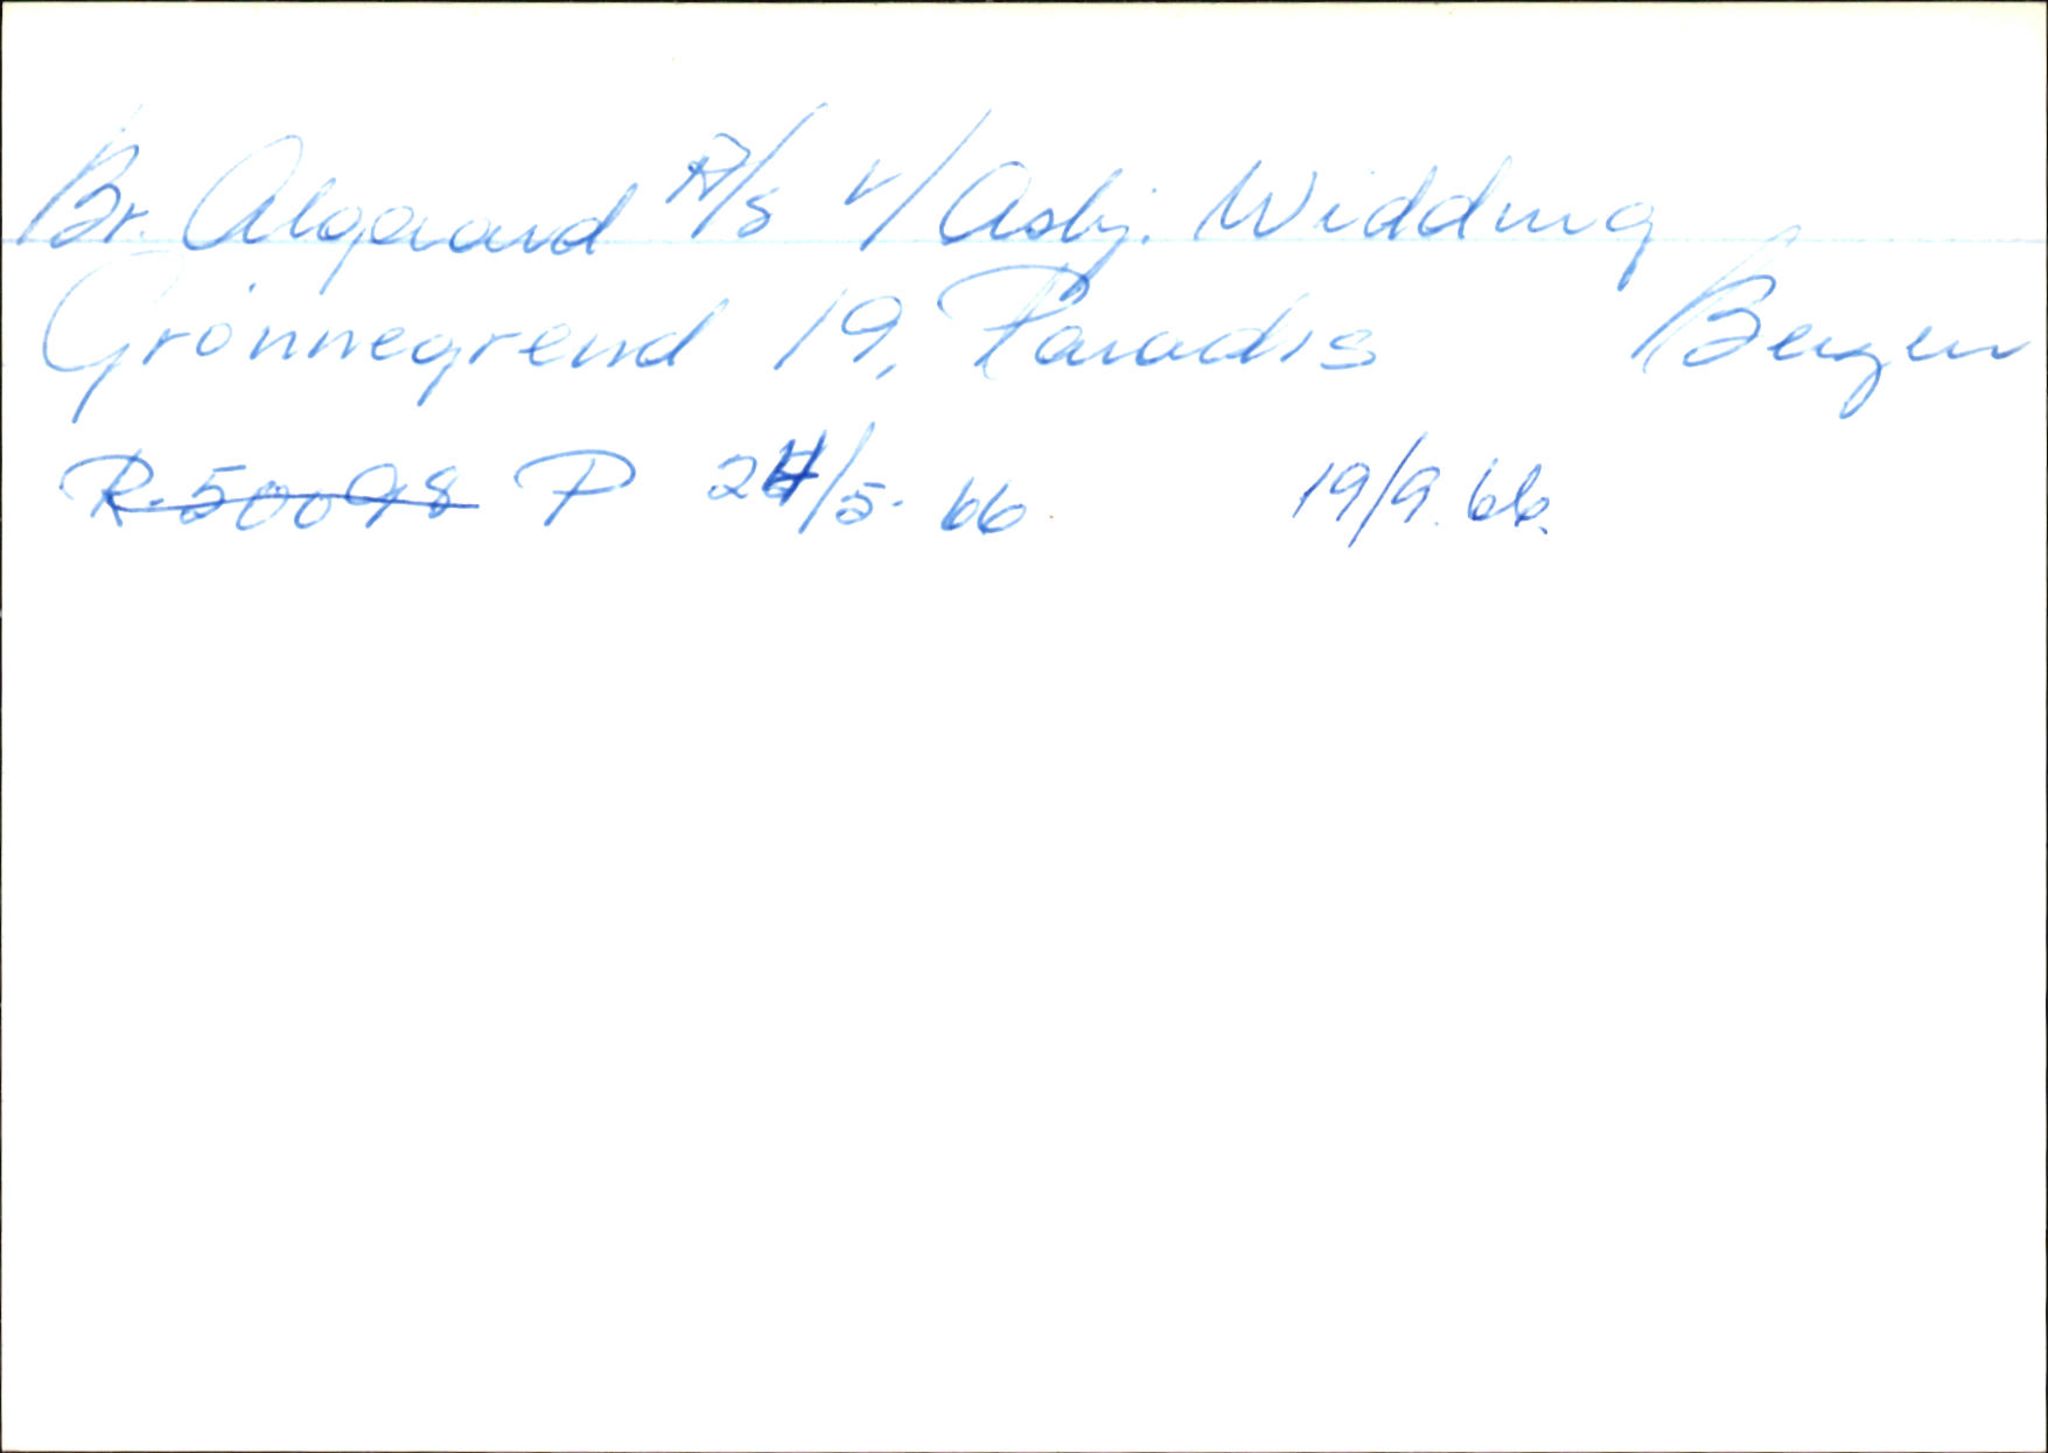 Br. Algaard A/S v/ Asbj. Widding
Grönnegrend 19, Paradis Bergen
R-50098 P 24/5-66 19/9.66.